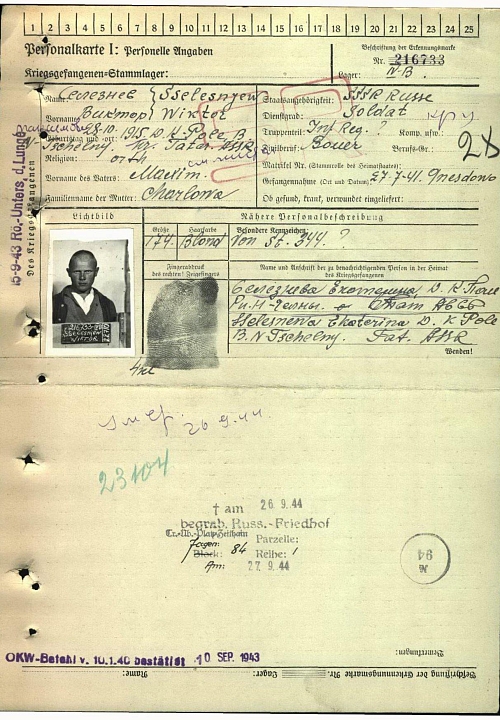 1 2 3 4 5 6 7 8 9 10 11 12 13 14 15 16 17 18 19 20 21 22 23 24 25
Personalkarte I: Personelle Angaben
Beschriftung der Erkennungsmarke
Nr. 216733
Kriegsgefangenen-Stammlager:
Lager: IV-B.
Name: Селезнев Sselesnjew
Staatsangehörigkeit: SSSR Russe
Vorname: Виктор Wiktor
Dienstgrad: Soldat
8.10.1915 D. K. Pole B.
Truppenteil: Inf. Reg. ? Komp. usw.:
N Tschelny. Tatar. SSR.
Zivilberuf: Bauer Berufs-Gr.:
Religion: orth
Matrikel Nr. (Stammrolle des Heimatstaates):
Vorname des Vaters: Maxim.
Gefangennahme (Ort und Datum): 27.7.41. Gnesdowo
Familienname der Mutter: Charlowa
Ob gesund, krank, verwundet eingeliefert:
15-9-43 Rö.-Unters. d. Lunge
Des Kriegsgefangenen
Lichtbild
Nähere Personalbeschreibung
Größe Haarfarbe Besondere Kennzeichen:
174. Blond Von St. 344. ?
Fingerabdruck
des rechten! Zeigefingers
Name und Anschrift der zu benachrichtigenden Person in der Heimat
des Kriegsgefangenen
Селезнева Екатерина, Д. К. Поле
Н-Челны.
Sselesnewa Ekaterina D. K Pole
B. N Tschelny. Tat. ASSR
Wenden!
SSELESNJEW
WIKTOR
26 9. 44.
23104
† am 26. 9. 44
begrab. Russ.-Friedhof
Tr.-Üb.-Platz Zeithain
Jagen:
Block: 84 Parzelle:
Reihe: 1
Am: 27. 9. 44
№ 94
OKW-Befehl v. 10.1.40 bestätigt 10 SEP. 1943
Bemerkungen:
Beschriftung der Erkennungsmarke Nr. Lager: Name: